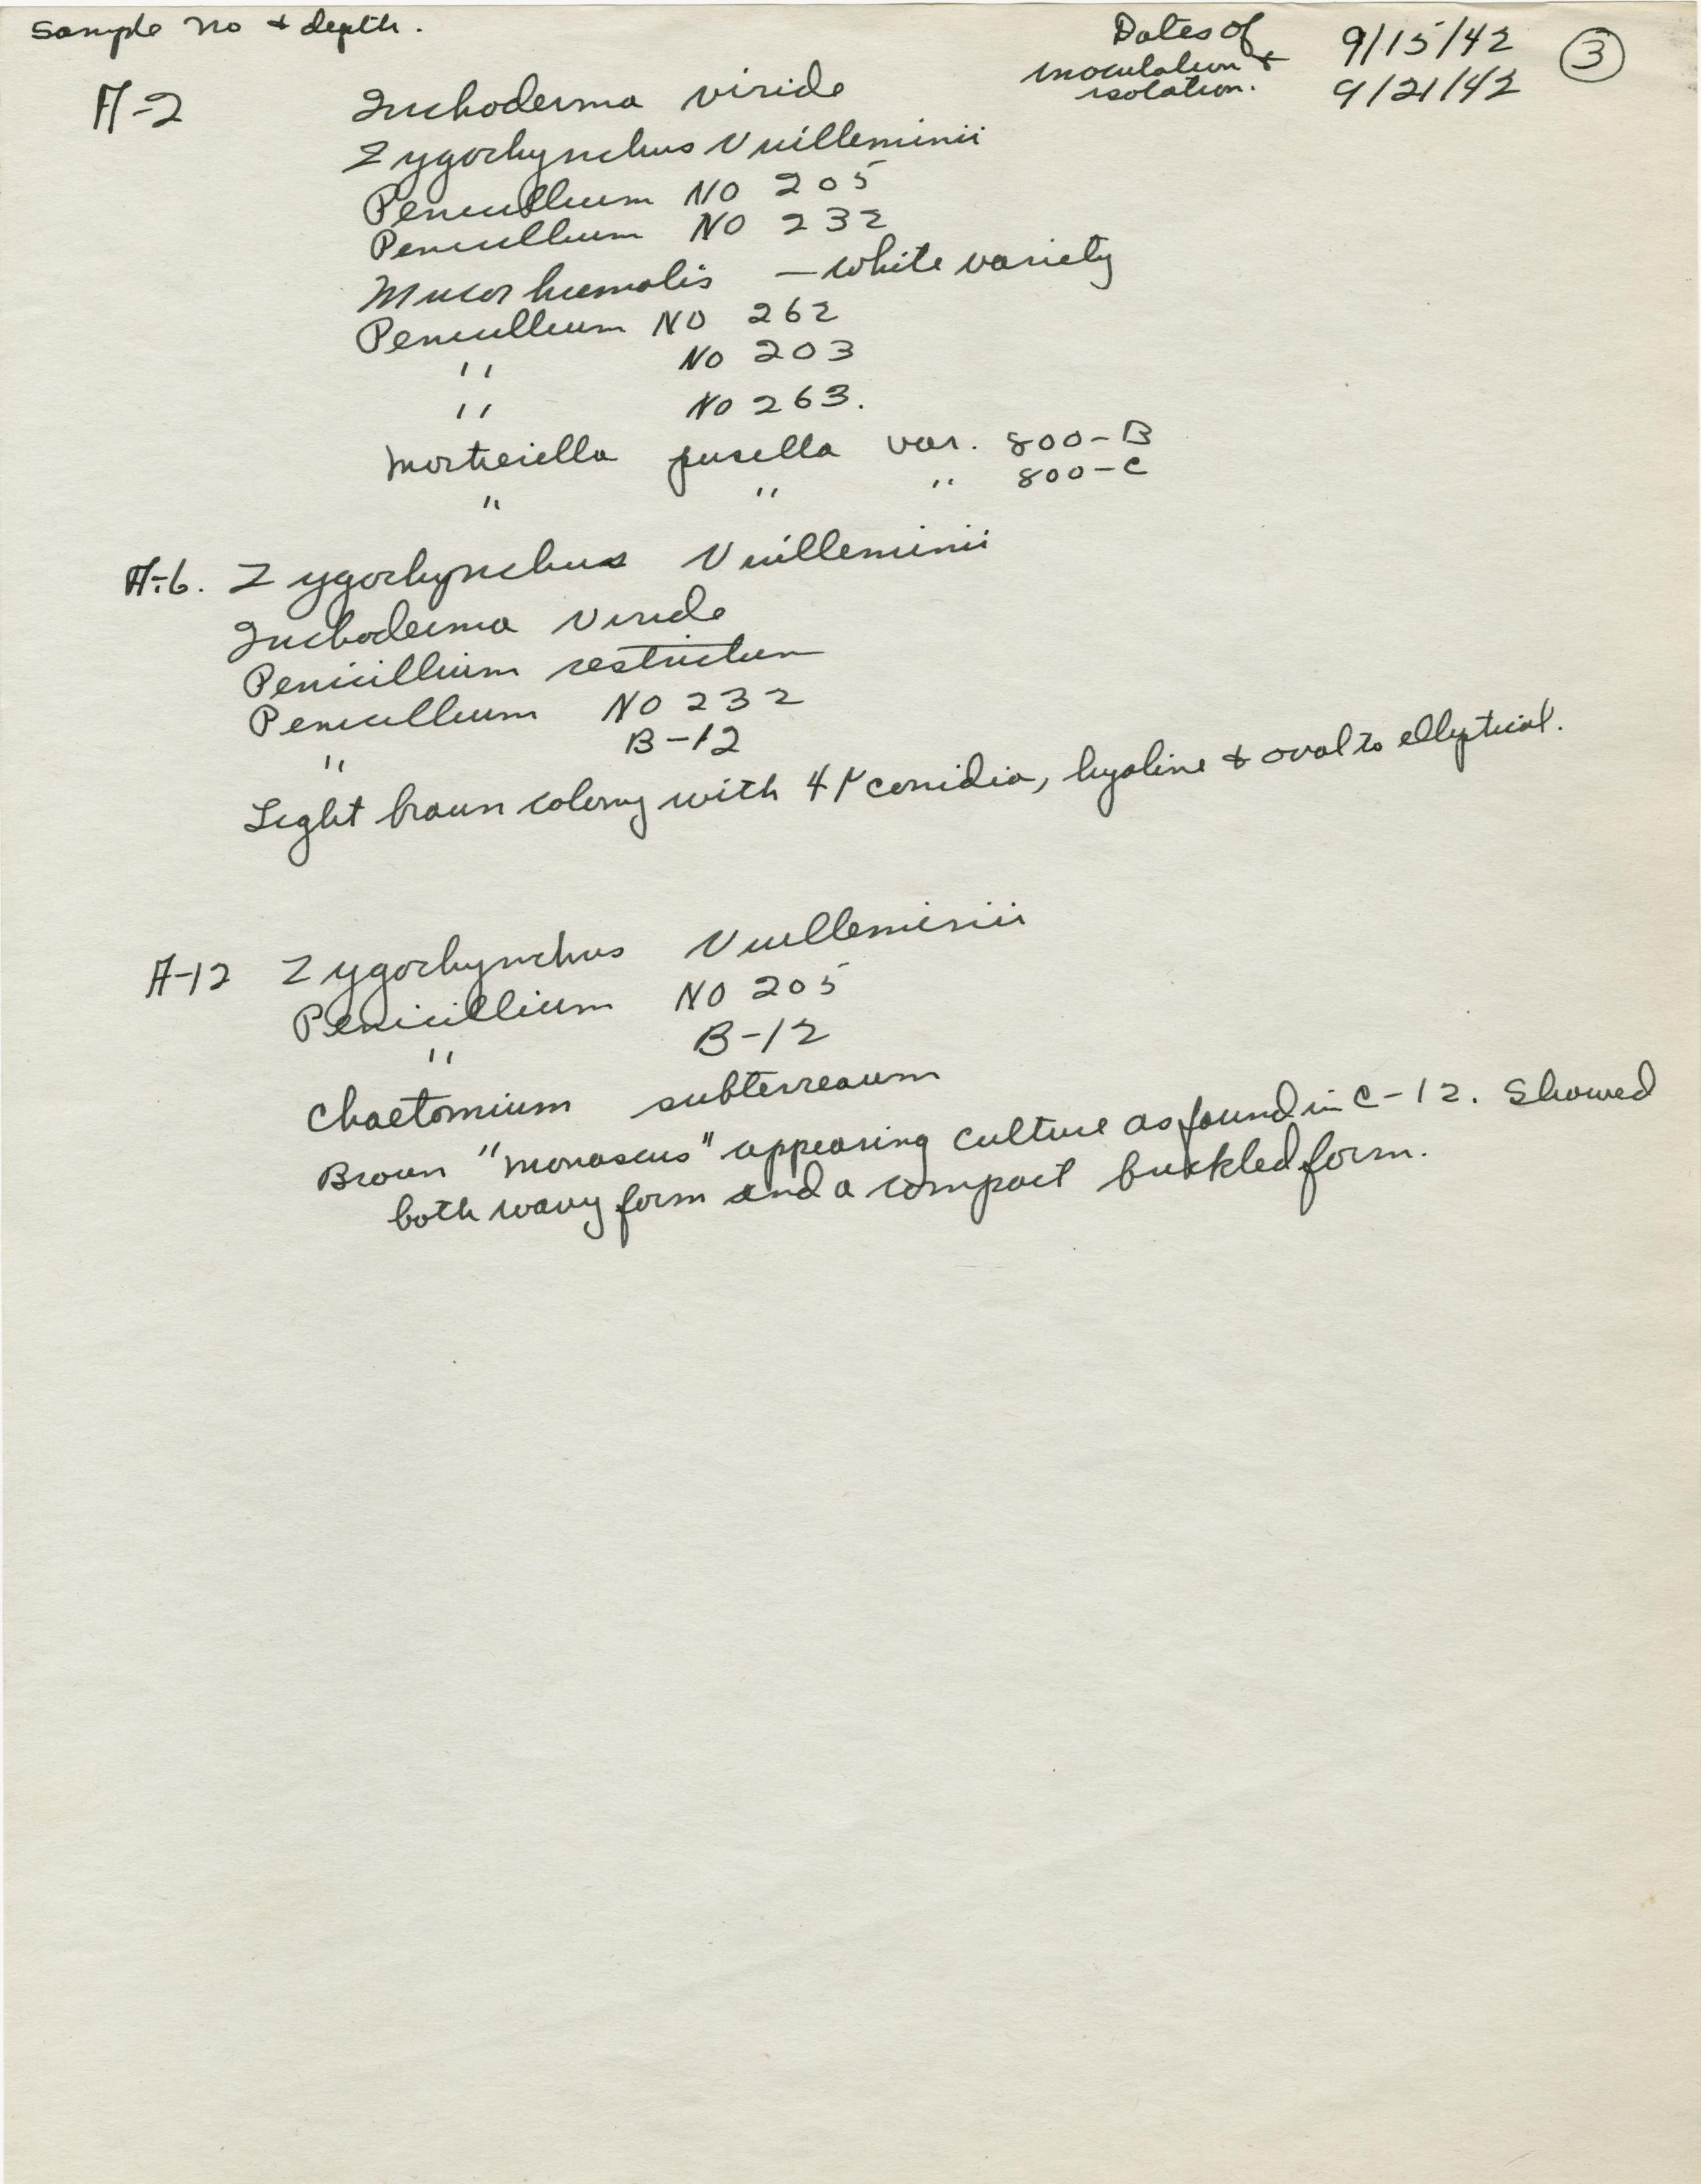 Sample no + depth.
Dates of inoculation + isolation.
9/15/42
9/21/42
3
A-2 Trichoderma viride
Zygorhynchus Vuilleminii
Penicillium NO 205
Penicillium NO 232
Mucor hiemalis — white variety
Penicillium NO 262
" NO 203
" NO 263.
Mortierella pusilla var. 800-B
" " " 800-C
A-6. Zygorhynchus Vuilleminii
Trichoderma viride
Penicillium restrictum
Penicillium NO 232
" B-12
Light brown colony with 4 µ conidia, hyaline + oval to elliptical.
A-12 Zygorhynchus Vuilleminii
Penicillium NO 205
" B-12
Chaetomium subterreaum
Brown "monascus" appearing culture as found in C-12. Showed
both wavy form and a compact buckled form.